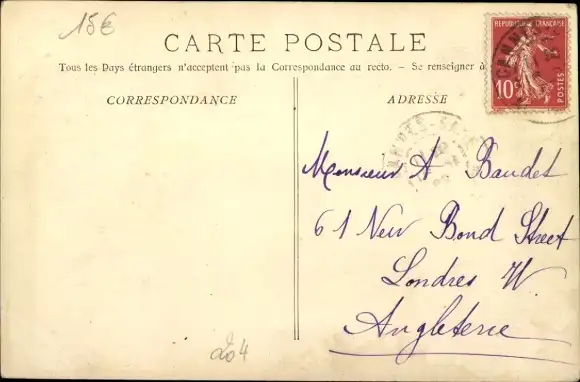 15€
CARTE POSTALE
Tous les Pays étrangers n'acceptent pas la Correspondance au recto. - Se renseigner à
CORRESPONDANCE
ADRESSE
REPUBLIQUE FRANÇAISE
10c
POSTES
CANNES
Monsieur A Baudet
61 New Bond Street
Londres W
Angleterre
204